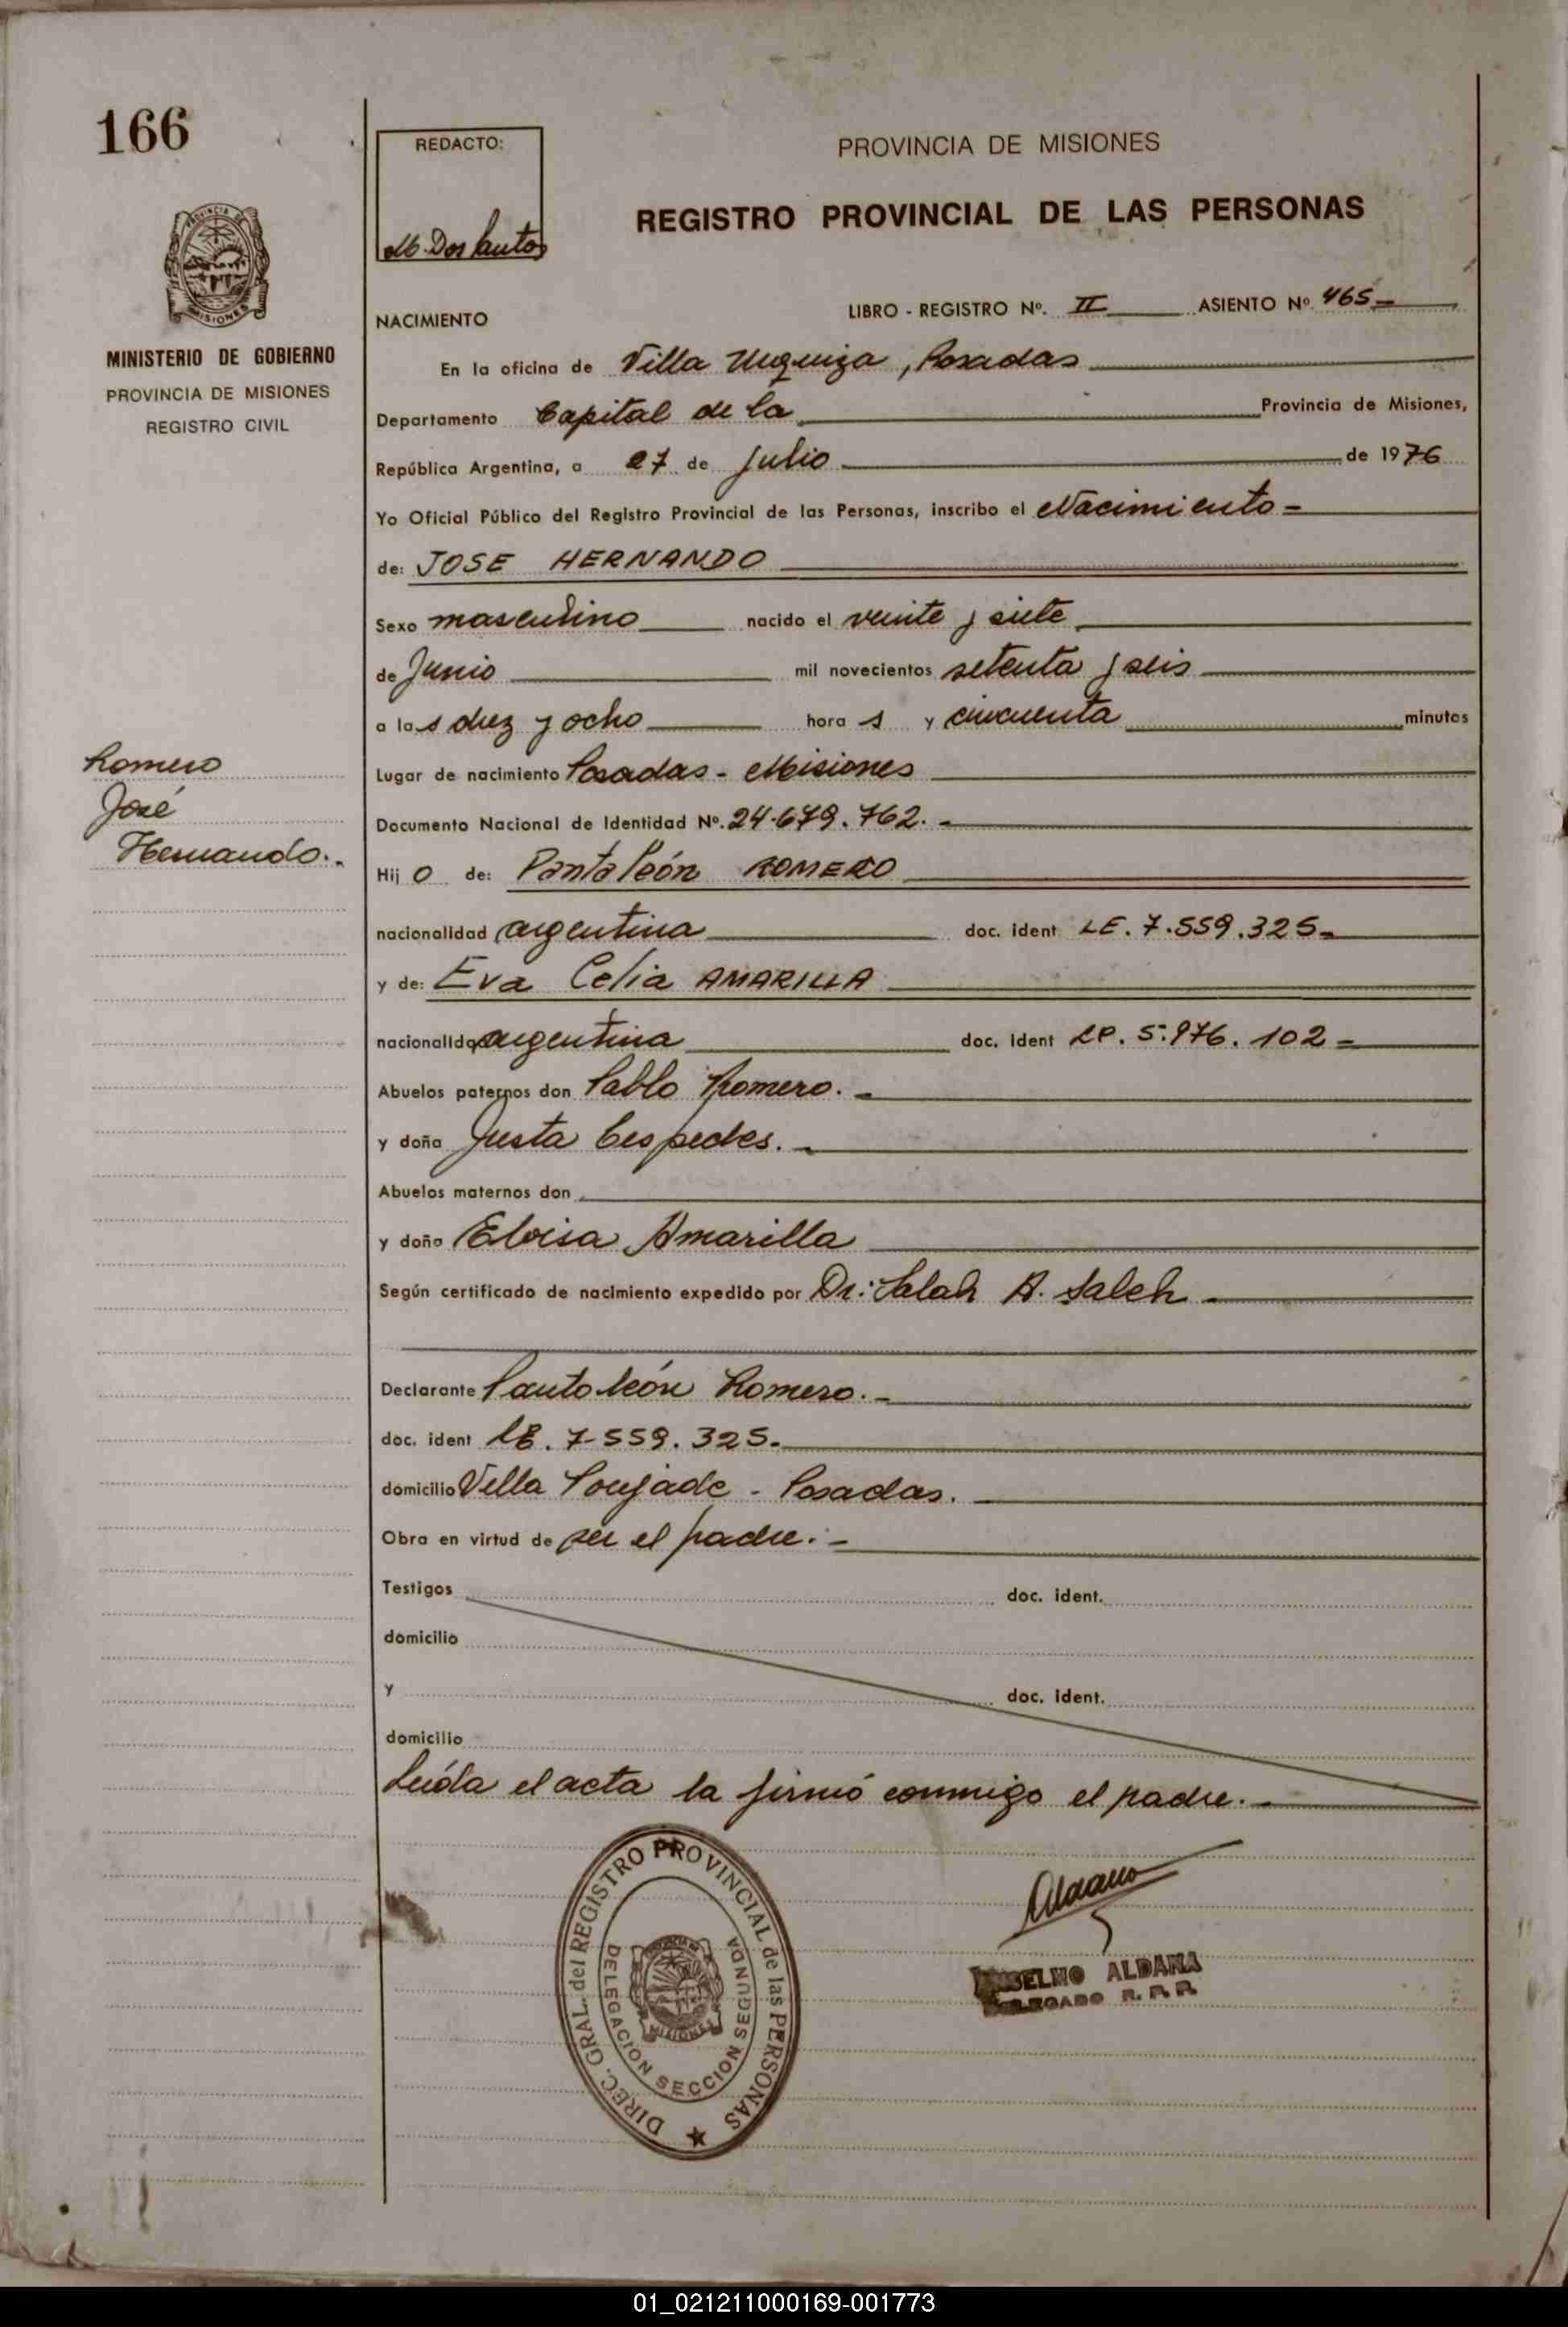 166
REDACTO:
M. Dos Santos
PROVINCIA DE MISIONES
REGISTRO PROVINCIAL DE LAS PERSONAS
MINISTERIO DE GOBIERNO
PROVINCIA DE MISIONES
REGISTRO CIVIL
NACIMIENTO
LIBRO - REGISTRO Nº. II ASIENTO Nº 465
En la oficina de Villa Urquiza, Posadas
Departamento Capital de la Provincia de Misiones,
República Argentina, a 27 de Julio de 1976
Yo Oficial Público del Registro Provincial de las Personas, inscribo el Nacimiento
de: JOSE HERNANDO
Sexo masculino nacido el veinte y siete
de Junio mil novecientos setenta y seis
a las diez y ocho hora s y cincuenta minutos
Romero
José
Hernando.
Lugar de nacimiento Posadas - Misiones
Documento Nacional de Identidad Nº. 24.679.762.
Hij o de: Pantaleón ROMERO
nacionalidad argentina doc. ident LE. 7.559.325
y de: Eva Celia AMARILLA
nacionalidad argentina doc. ident LC. 5.976.102
Abuelos paternos don Pablo Romero.
y doña Justa Cespedes.
Abuelos maternos don
y doña Eloisa Amarilla
Según certificado de nacimiento expedido por Dr. Salah A. Saleh
Declarante Pantaleón Romero.
doc. ident LE. 7.559.325.
domicilio Villa Poujade - Posadas.
Obra en virtud de ser el padre.
Testigos doc. ident.
domicilio
y doc. ident.
domicilio
Leída el acta la firmó conmigo el padre.
DIREC. GRAL. del REGISTRO PROVINCIAL de las PERSONAS
DELEGACION SECCION SEGUNDA
MISIONES
ANSELMO ALDANA
DELEGADO R. P. P.
01_021211000169-001773